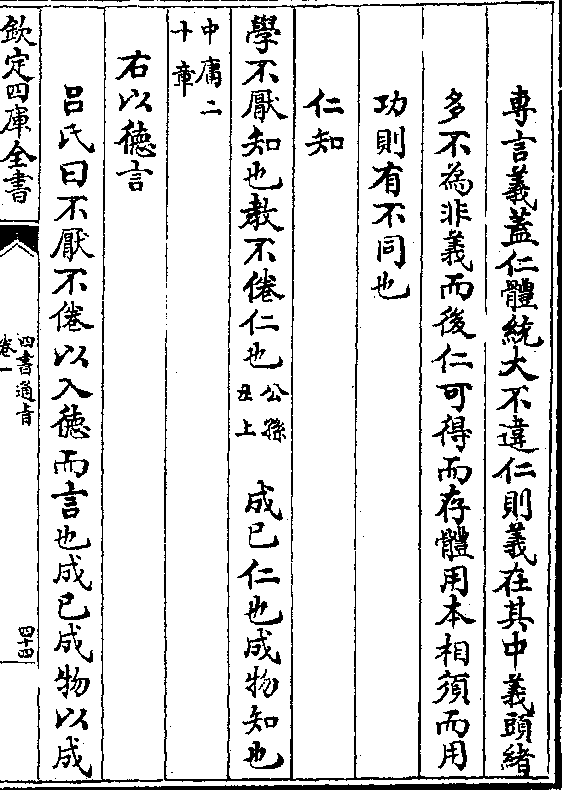 專言義蓋仁體統大不違仁則義在其中義頭緒
多不為非義而後仁可得而存體用本相須而用
功則有不同也
仁知
學不厭知也教不倦仁也公孫丑上 成已仁也成物知也
中庸二十章
右以德言
吕氏曰不厭不倦以入德而言也成已成物以成
欽定四庫全書
四書通旨
卷一
四十四